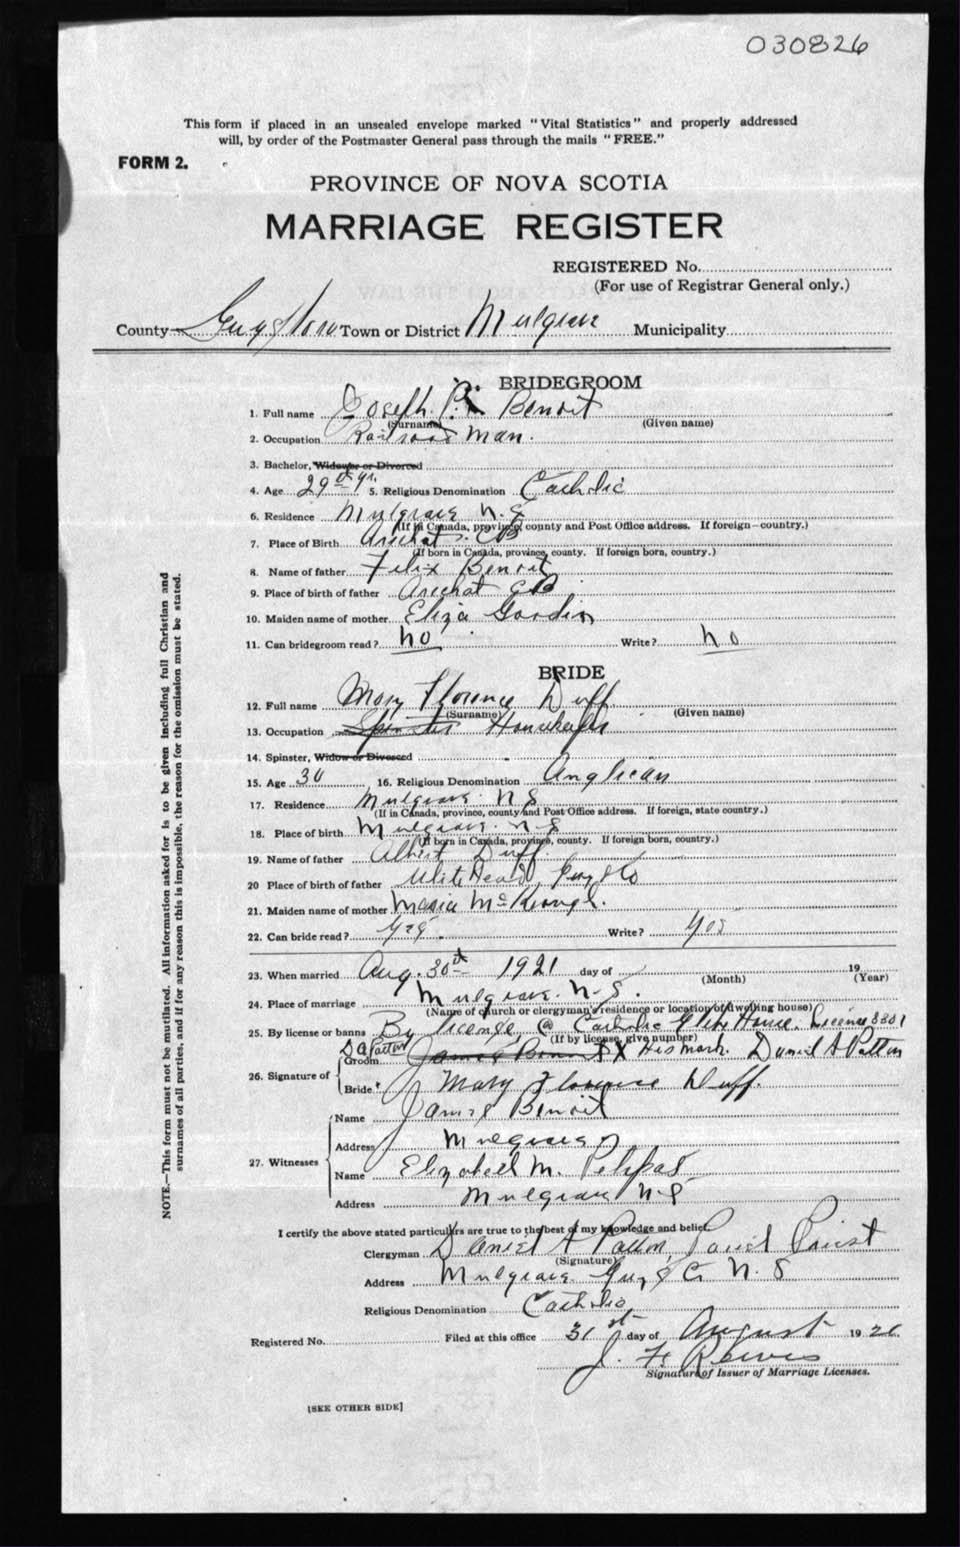 030826
This form if placed in an unsealed envelope marked "Vital Statistics" and properly addressed
will, by order of the Postmaster General pass through the mails "FREE."
FORM 2.
PROVINCE OF NOVA SCOTIA
MARRIAGE REGISTER
REGISTERED No.
(For use of Registrar General only.)
County Town or District Mulgrave Municipality
BRIDEGROOM
1. Full name Joseph P. Benoit
(Surname) (Given name)
2. Occupation Railroad Man.
3. Bachelor, Widower or Divorced
4. Age 29 yr. 5. Religious Denomination Catholic
6. Residence Mulgrave N.S
(If in Canada, province, county and Post Office address. If foreign—country.)
7. Place of Birth Arichat. CB
(If born in Canada, province, county. If foreign born, country.)
8. Name of father Felix Benoit
9. Place of birth of father Arichat CB
10. Maiden name of mother Eliza
11. Can bridegroom read? no Write? no
BRIDE
12. Full name Mary Florence Duff.
(Surname) (Given name)
13. Occupation Spinster
14. Spinster, Widow or Divorced
15. Age 30 16. Religious Denomination Anglican
17. Residence Mulgrave. N S
(If in Canada, province, county and Post Office address. If foreign, state country.)
18. Place of birth Mulgrave. N S
(If born in Canada, province, county. If foreign born, country.)
19. Name of father Albert Duff.
20 Place of birth of father White Head Guys Co
21. Maiden name of mother Maria
22. Can bride read? Yes. Write? Yes
23. When married Aug. 30th 1921 day of 19
(Month) (Year)
24. Place of marriage Mulgrave. N.S.
(Name of church or clergyman's residence or location of dwelling house)
25. By license or banns By license @ Catholic Glebe House. Licence 3301
(If by license, give number)
26. Signature of
Groom James Benoit X His mark. Daniel A Patton
Bride Mary Florence Duff.
27. Witnesses
Name James Benoit
Address Mulgrave
Name Elizabeth M.
Address Mulgrave N.S
I certify the above stated particulars are true to the best of my knowledge and belief.
Clergyman Daniel A Patton, Parish Priest
(Signature)
Address Mulgrave Guys Co N. S
Religious Denomination Catholic
Registered No. Filed at this office 31st day of August 1921
J. F. Reeves
Signature of Issuer of Marriage Licenses.
[SEE OTHER SIDE]
NOTE.—This form must not be mutilated. All information asked for is to be given including full Christian and
surnames of all parties, and if for any reason this is impossible, the reason for the omission must be stated.